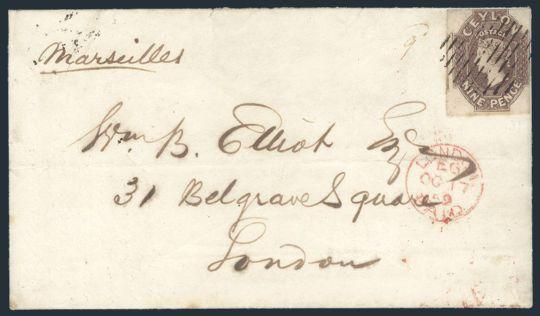 Marseilles
CEYLON
POSTAGE
NINE PENCE
Wm B. Elliot Esq
31 Belgrave Square
London
LONDON
EG
OC 17
59
PAID